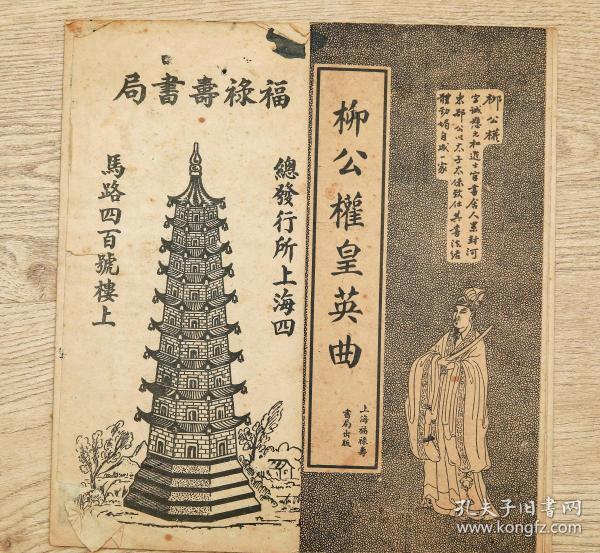 柳公權
官諴懸元和進士官書舍人累封河
東郡公以太子太保致仕其書法結
體勁媚自成一家
柳公權皇英曲
上海福祿壽
書局出版
福祿壽書局
總發行所上海四
馬路四百號樓上
孔夫子旧书网
www.kongfz.com